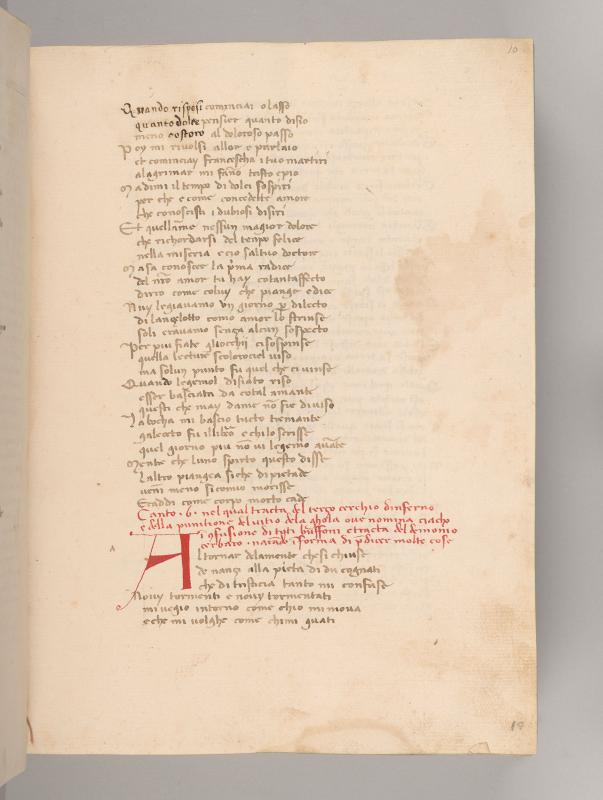 10
Quando risposi cominciai o lasso
quanto dolce pensier quanto disio
meno costoro al doloroso passo
Poy mi rivolsi allor e parlaio
et cominciay francescha i tuo martiri
a lagrimar mi fano tristo e pio
Ma dimi il tempo di dolci sospiri
per che e come concedette amore
che conoscisti i dubiosi disiri
Et quella me nessun magior dolore
che richordarsi del tenpo felice
nella miseria e cio sal tuo doctore
Ma sa conoscer la pma radice
del nro amor tu hay cotant affecto
diro come coluy che piange e dice
Nuy legiavamo un giorno p dilecto
di lanzelotto como amor lo strinse
soli eravamo senza alcun sospecto
Per piu fiate gliocchi ci sospinse
quella lecture scoloroci el viso
ma solun punto fu quel che ci vinse
Quando legemol disiato riso
esser basciata da cotal amante
questi che may da me no fie diviso
La bocha mi bascio tucto tremante
galeocto fu il libro e chi lo scrisse
quel giorno piu no vi legemo avate
Mentre che luno spirto questo disse
laltro piangea si che di pietade
veni meno si como morisse
E caddi come corpo morto cade
Canto . 6 . nel qual tracta del terzo cerchio dinferno
e della punitione del vitio dela ghola ove nomina ciacho
i cofusione di tuti buffoni e tracta del demonio
cerbaro . narado i forma di pdicer molte cose
Al tornar dela mente che si chiuse
de nanzi alla pieta di du cognati
che di tristicia tanto mi confuse
Novy tormenti e novy tormentati
mi vegio intorno come chio mi mova
e che mi volghe come chi mi guati
19